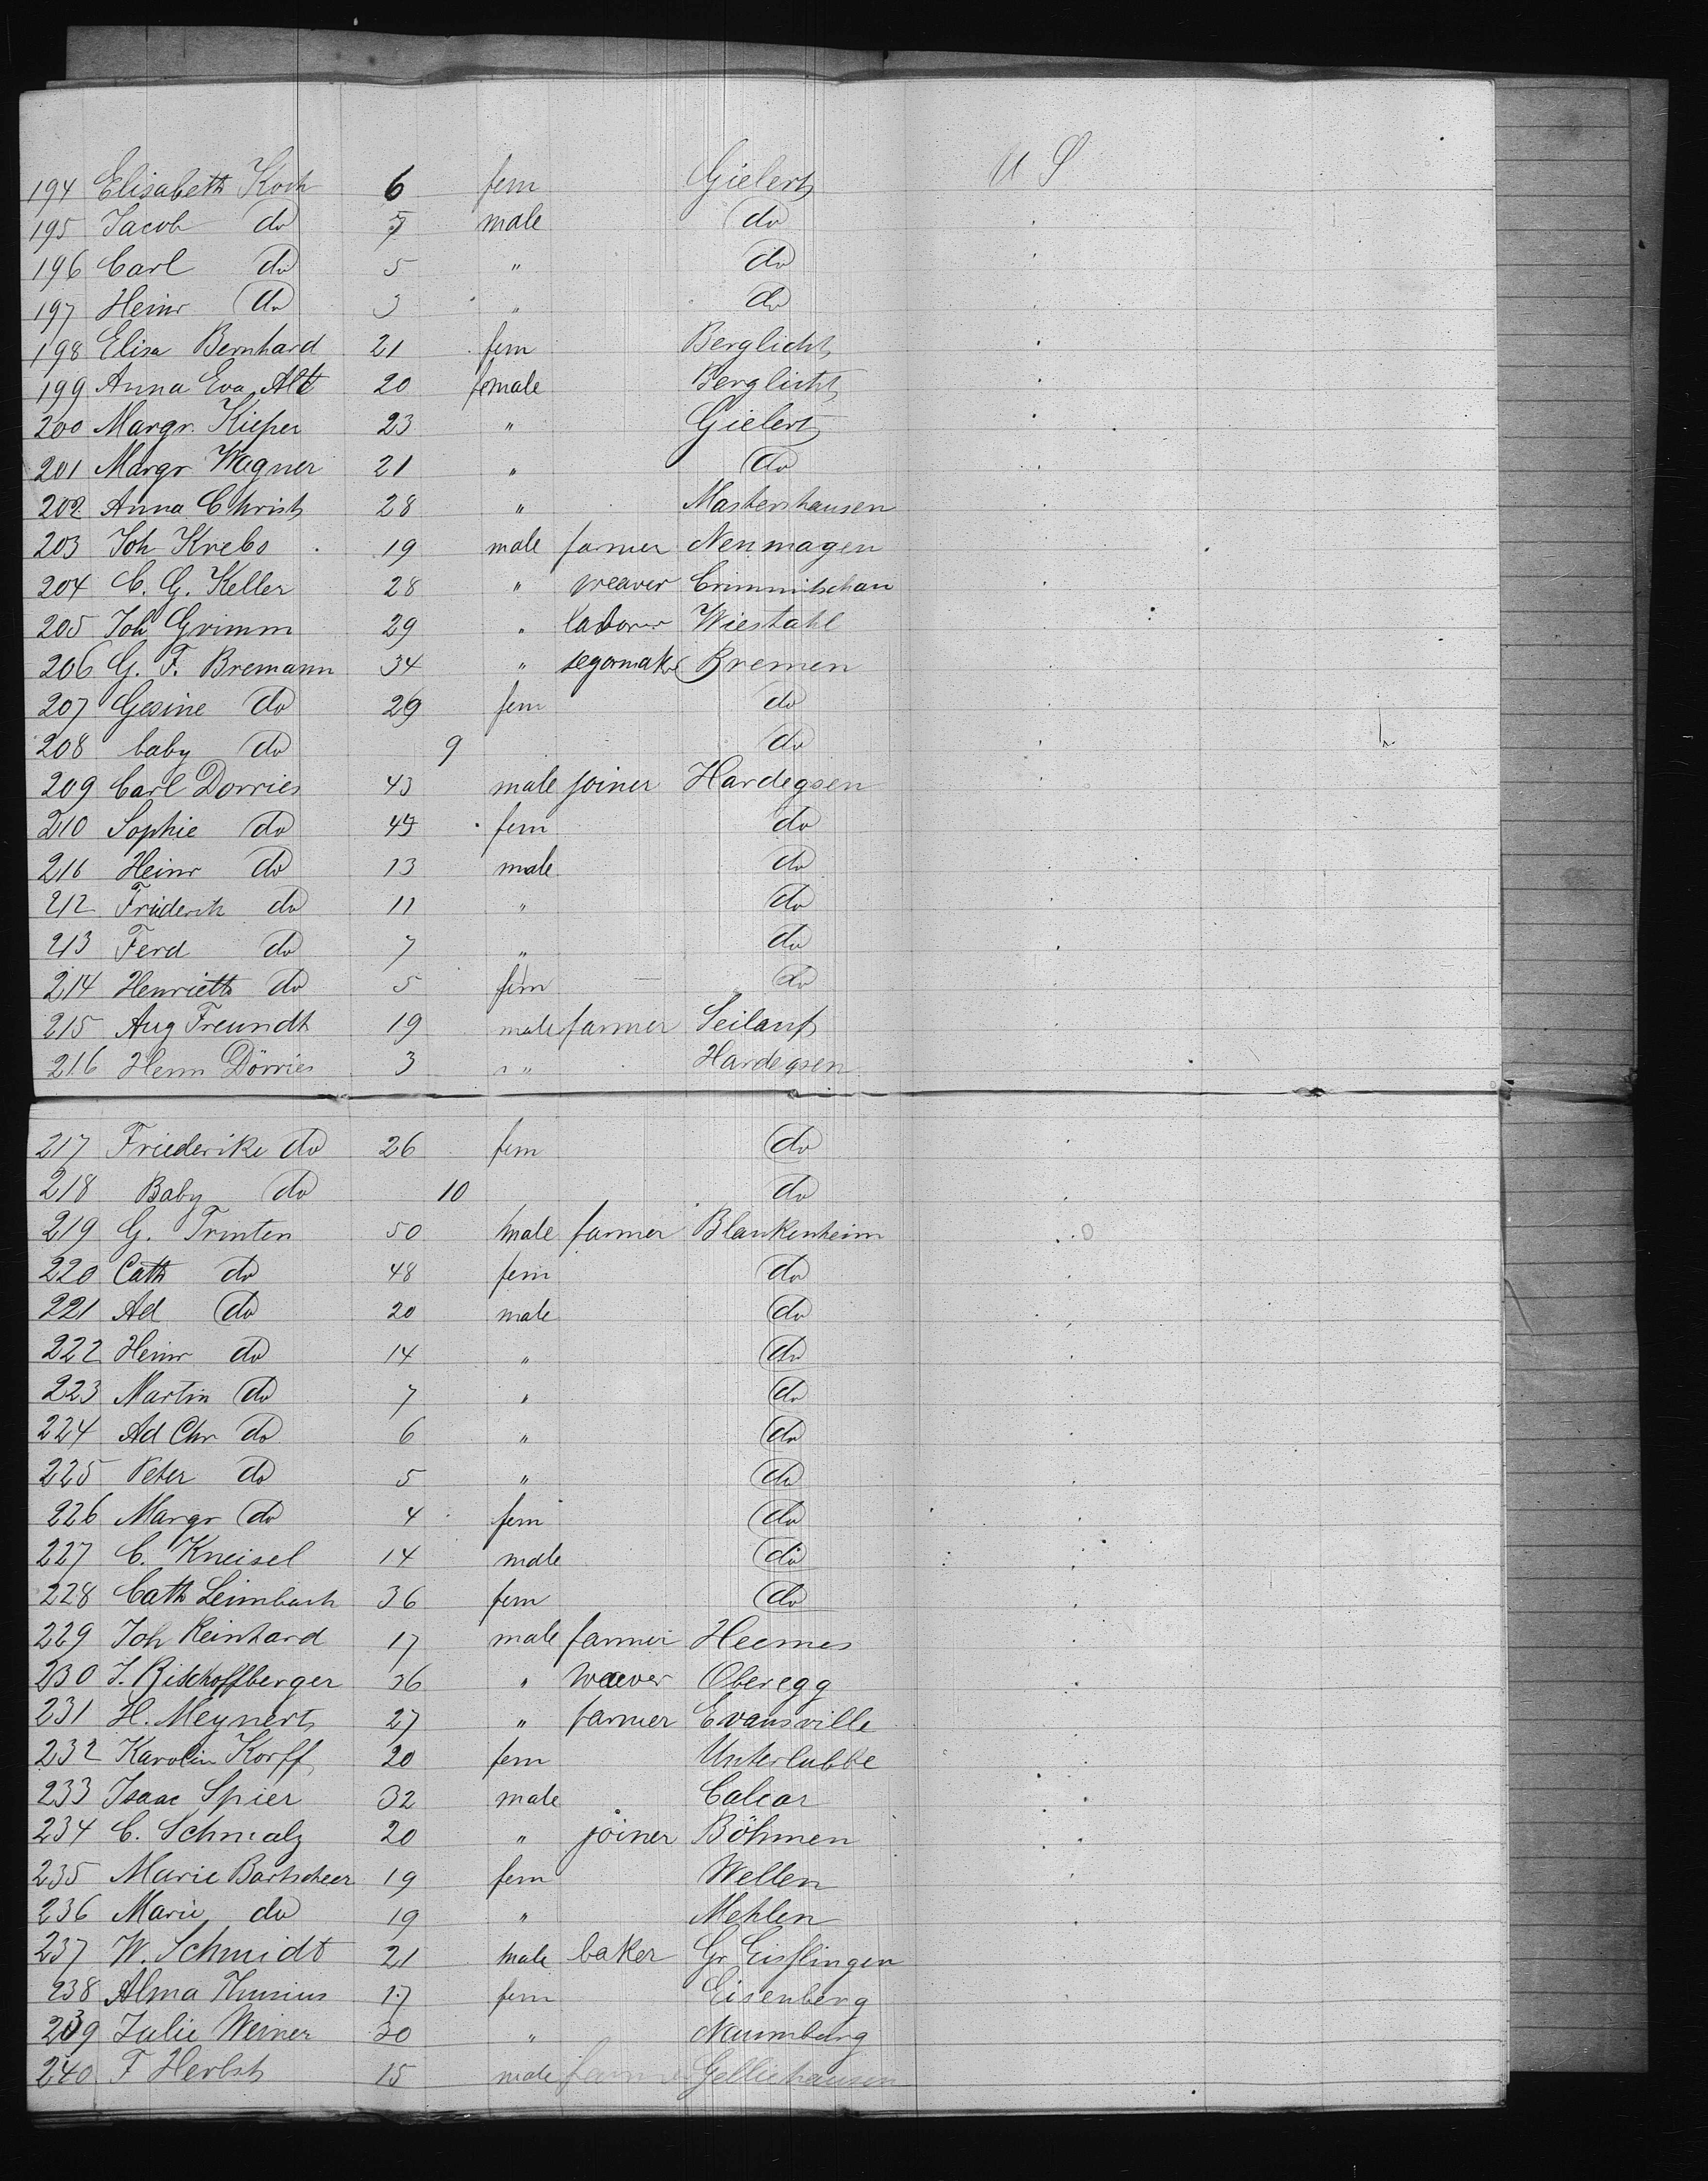 194 Elisabeth Koch 6 fem Gielert U S
195 Jacob do 7 male do
196 Carl do 5 " do
197 Heinr do 3 " do
198 Elisa Bernhard 21 fem Berglicht
199 Anna Eva Alt 20 female Berglicht
200 Margr. Kieper 23 " Gielert
201 Margr Wagner 21 " do
202 Anna Christ 28 " Mastershausen
203 Joh Krebs 19 male farmer Nenmagen
204 C. G. Keller 28 " weaver Crimmitschau
205 Joh Grimm 29 " laborer Wiestahl
206 G. F. Bremann 34 " segarmaker Bremen
207 Gesine do 29 fem do
208 baby do 9 do
209 Carl Dorries 43 male joiner Hardegsen
210 Sophie do 43 fem do
211 Heinr do 13 male do
212 Friederik do 11 " do
213 Ferd do 7 " do
214 Henrietta do 5 fem do
215 Aug Freundt 19 male farmer Seilauf
216 Herm Dörries 3 " Hardegsen
217 Friederike do 26 fem do
218 Baby do 10 do
219 G. Trinten 50 male farmer Blankenheim
220 Cath do 48 fem do
221 Ad do 20 male do
222 Heinr do 14 " do
223 Martin do 7 " do
224 Ad Chr do 6 " do
225 Peter do 5 " do
226 Margr do 4 fem do
227 C. Kneisel 14 male do
228 Cath Leimbach 36 fem do
229 Joh Reinhard 17 male farmer Heemes
230 J. Bischoffberger 36 " weaver Oberegg
231 H. Meynert 27 " farmer Evansville
232 Karolin Korff 20 fem Unterlubbe
233 Isaac Spier 32 male Calcar
234 C. Schmalz 20 " joiner Böhmen
235 Marie Bartscheer 19 fem Wellen
236 Marie do 19 " Mehlen
237 W. Schmidt 21 male baker Gr Eisflingen
238 Alma Thusius 17 fem Eisenberg
239 Julie Weiner 30 " Naumburg
240 F Herbst 15 male farmer Gelliehausen